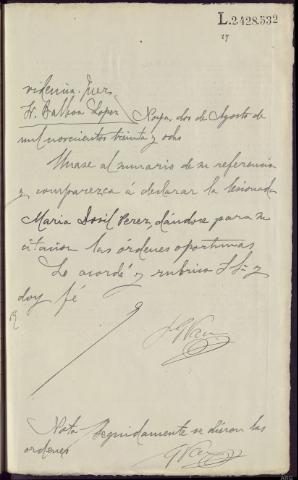 L.2428.532
videncia. Juez
Balboa Lopez
Noya, dos de Agosto de
mil novecientos treinta y ocho
Unase al sumario de su referencia
y comparezca á declarar la lesionada
Maria Perez, dándose para su
citación las órdenes oportunas
Lo acordó y rubrica SSª y
doy fé
Nota. Seguidamente se dieron las
ordenes